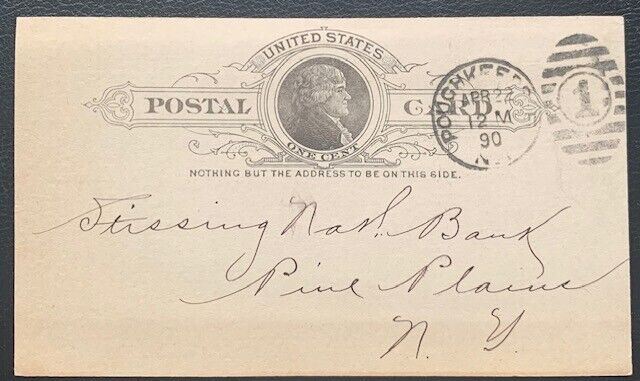 UNITED STATES
POSTAL CARD
ONE CENT
NOTHING BUT THE ADDRESS TO BE ON THIS SIDE.
POUGHKEE
APR 22
12 M
90
N.
1
Stissing Nat. Bank
Pine Plains
N. Y.